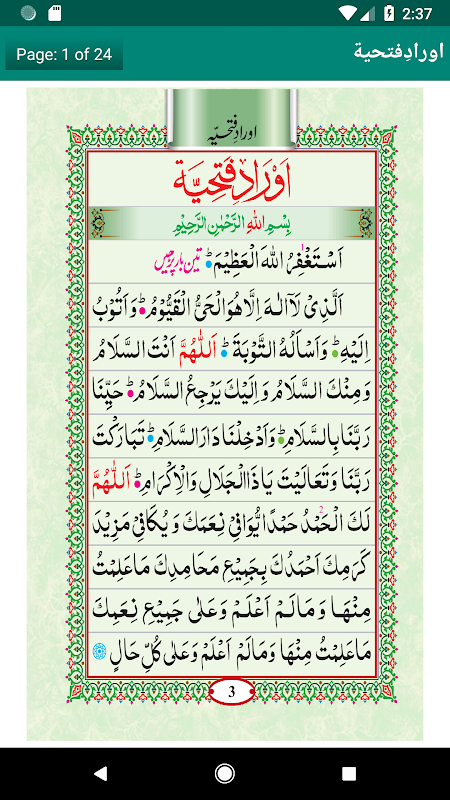 2:37
Page: 1 of 24
اورادِفتحیة
اورادِفتحیّہ
اَوْرَادِفَتْحِیَّة
بِسْمِ اللهِ الرَّحْمٰنِ الرَّحِیْمِ
اَسْتَغْفِرُ اللهَ الْعَظِیْمَ تین بار پڑھیں
اَلَّذِیْ لَآ اِلٰهَ اِلَّا هُوَ الْحَیُّ الْقَیُّوْمُ وَ اَتُوْبُ
اِلَیْهِ وَ اَسْاَلُهُ التَّوْبَةَ اَللّٰهُمَّ اَنْتَ السَّلَامُ
وَ مِنْكَ السَّلَامُ وَ اِلَیْكَ یَرْجِعُ السَّلَامُ حَیِّنَا
رَبَّنَا بِالسَّلَامِ وَ اَدْخِلْنَا دَارَ السَّلَامِ تَبَارَكْتَ
رَبَّنَا وَ تَعَالَیْتَ یَا ذَا الْجَلَالِ وَ الْاِكْرَامِ اَللّٰهُمَّ
لَكَ الْحَمْدُ حَمْدًا یُّوَافِیْ نِعَمَكَ وَ یُكَافِیْ مَزِیْدَ
كَرَمِكَ اَحْمَدُكَ بِجَمِیْعِ مَحَامِدِكَ مَا عَلِمْتُ
مِنْهَا وَ مَا لَمْ اَعْلَمْ وَ عَلٰی جَمِیْعِ نِعَمِكَ
مَا عَلِمْتُ مِنْهَا وَ مَا لَمْ اَعْلَمْ وَ عَلٰی كُلِّ حَالٍ
3